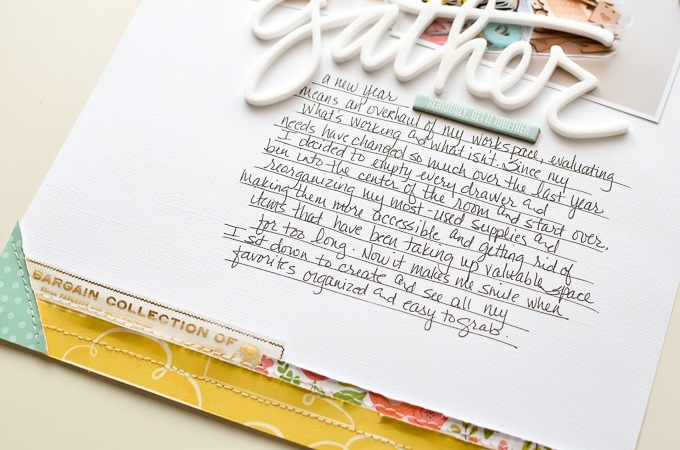 gather
a new year
means an overhaul of my workspace, evaluating
what's working and what isn't. Since my
needs have changed so much over the last year
I decided to empty every drawer and
bin into the center of the room and start over,
reorganizing my most-used supplies and
making them more accessible and getting rid of
items that have been taking up valuable space
for too long. Now it makes me smile when
I sit down to create and see all my
favorites organized and easy to grab.
BARGAIN COLLECTION OF